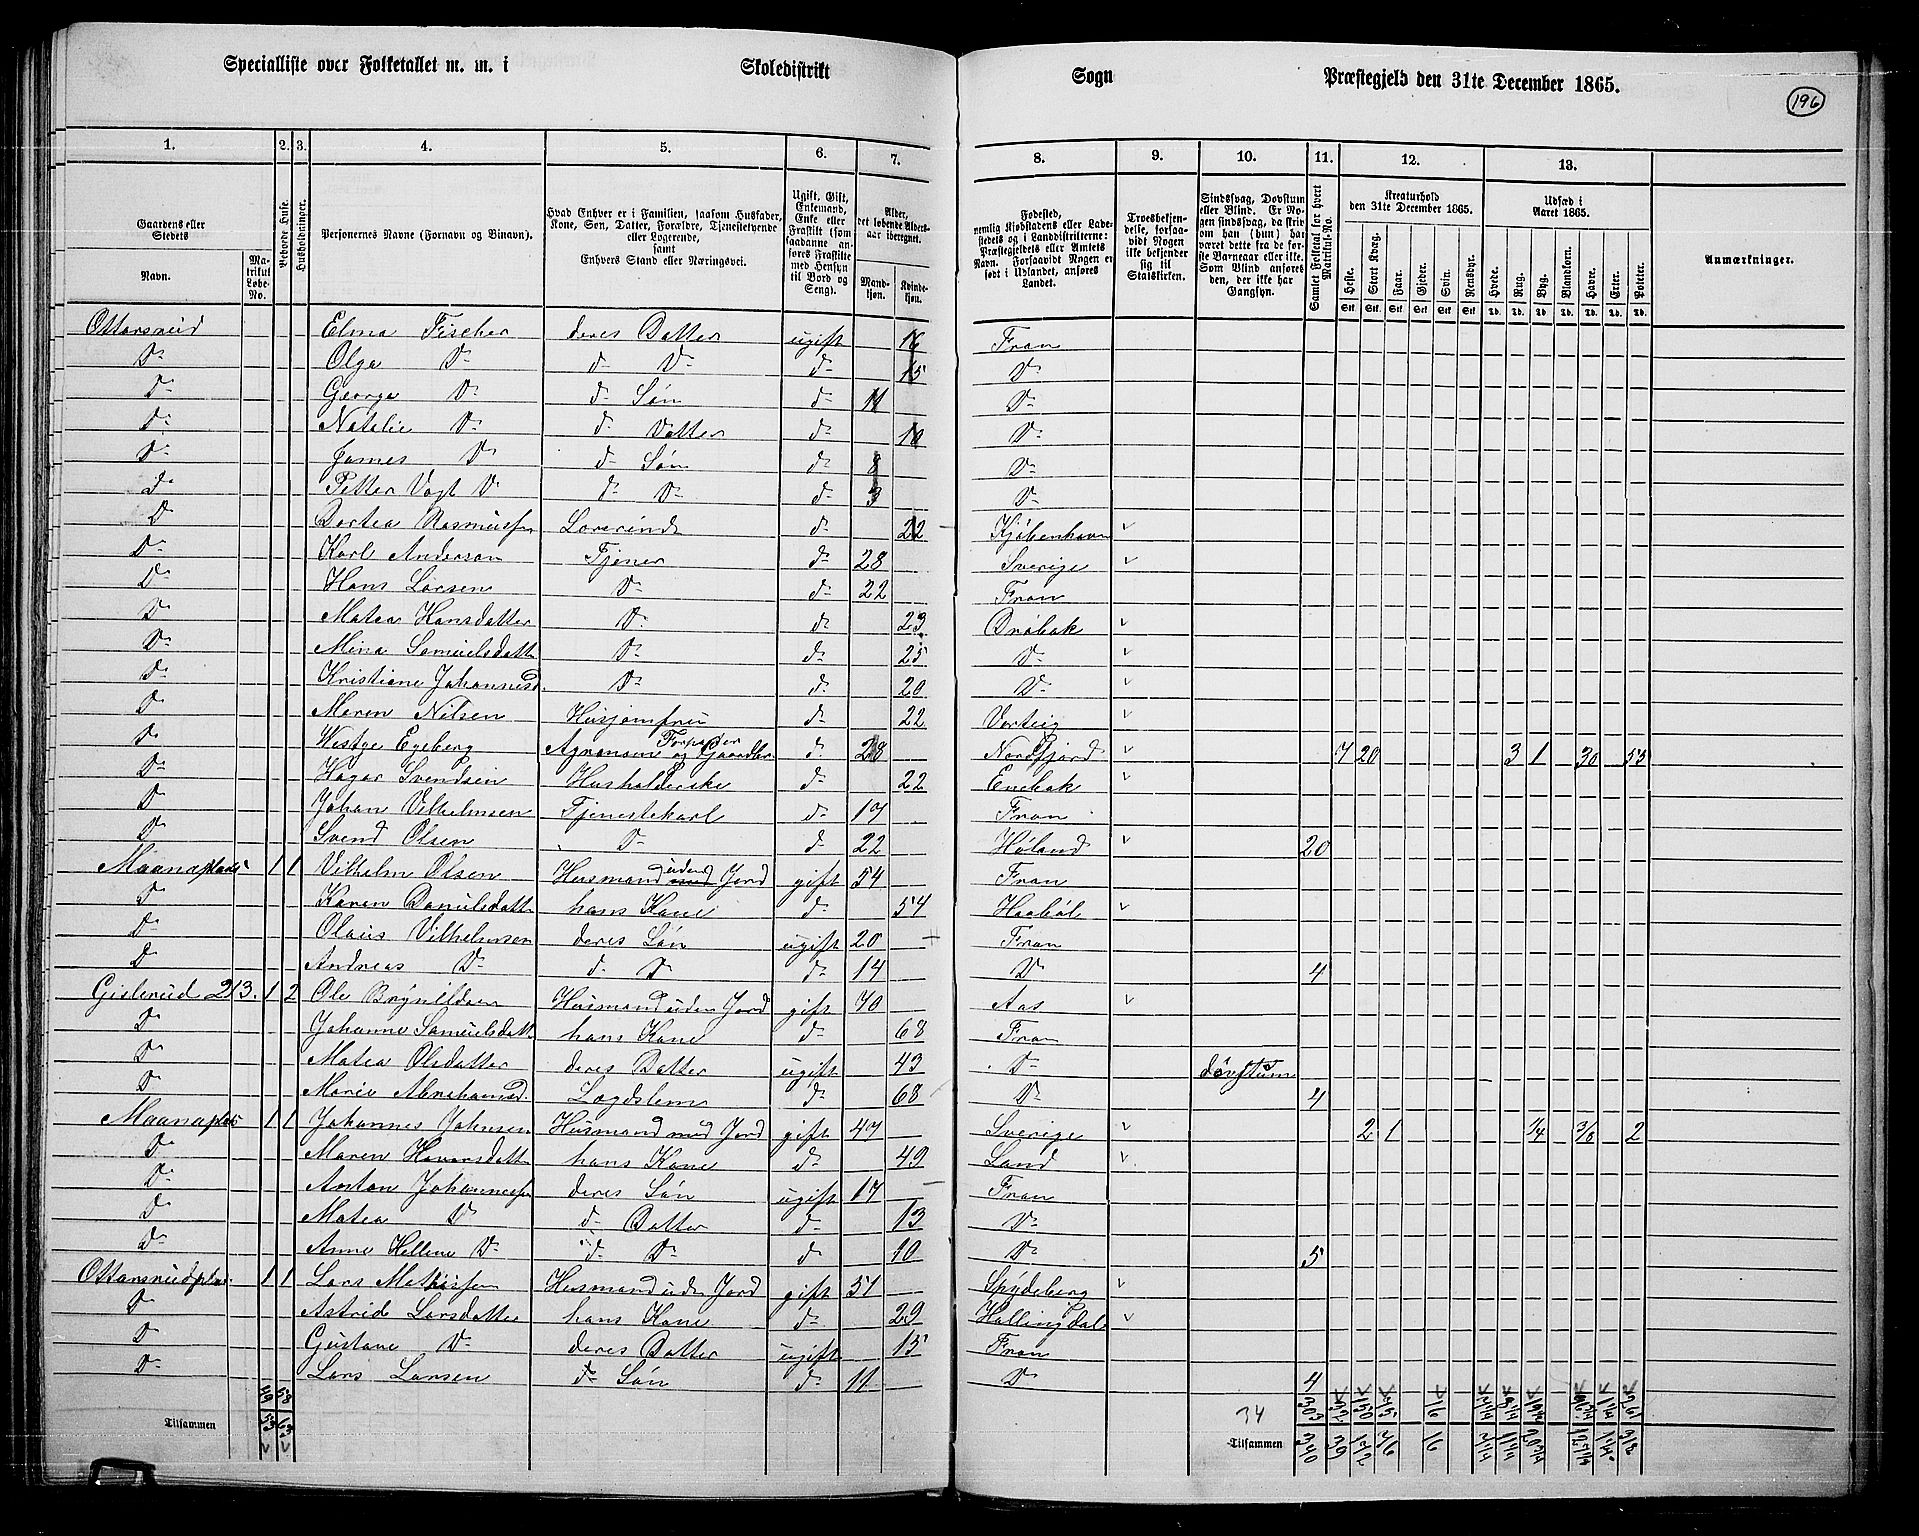 Specialliste over Folketallet m. m. i Skoledistrikt Sogn Præstegjeld den 31te December 1865.
196
1. 2. 3. 4. 5. 6. 7. 8. 9. 10. 11. 12. 13.
Gaardens eller Stedets
Navn.
Matrikul Løbe-No.
Beboede Huse.
Husholdninger.
Personernes Navne (Fornavn og Binavn).
Hvad Enhver er i Familien, saasom Husfader, Kone, Søn, Datter, Forældre, Tjenestetyende eller Logerende, samt Enhvers Stand eller Næringsvei.
Ugift, Gift, Enkemand, Enke eller Fraskilt (som saadanne anføres Fraskilte med Hensyn til Bord og Seng).
Alder, det løbende Aldersaar iberegnet.
Mandkjøn. Kvindekjøn.
Fødested, nemlig Kjøbstadens eller Ladestedets og i Landdistrikterne: Præstegjeldets eller Amtets Navn. Forsaavidt Nogen er født i Udlandet, anføres Landet.
Troesbekjendelse, forsaavidt Nogen ikke bekjender sig til Statskirken.
Sindssvag, Døvstum eller Blind. Er Nogen sindssvag, da skriv om han (hun) har været dette fra de første Barneaar eller ikke. Som Blind anføres den, der ikke har Gangsyn.
Samlet Folketal for hvert Matrikul-No.
Kreaturhold den 31te December 1865.
Heste. Stort Kvæg. Faar. Gjeder. Svin. Rensdyr.
Udsæd i Aaret 1865.
Hvede. Rug. Byg. Blandkorn. Havre. Erter. Poteter.
Stk. Stk. Stk. Stk. Stk. Stk. Td. Td. Td. Td. Td. Td. Td.
Anmærkninger.
Ottarsrud Elma Fischer deres Datter ugift 16 Fron
D- Olga D- d- D- d- 15 D-
D- George D- d- Søn d- 11 D-
D- Natalie D- d- Datter d- 10 D-
D- James D- d- Søn d- 8 D-
d- Petter Vogt D- d- D- d- 3 D-
D Dortea Rasmussen Lærerinde d- 22 Kjöbenhavn
D- Karl Anderson Tjener d- 28 Sverige
D- Hans Larsen D- d- 22 Fron
D Matea Hansdatter D- d- 23 Dröbak
D- Mina Samuelsdatt D- d- 25 D-
D Kristiane Johannesd. D- d- 20 D-
D Maren Nilsen Husjomfru d- 22 Varteig
D Westye Egeberg Agronom og Forpagter Gaardbr. d 28 Nordfjord 7 20 3 1 30 53
D- Hagar Svendsen Husholderske d- 22 Enebak
D Johan Vilhelmsen Tjenestekarl d- 17 Fron
D Svend Olsen D- d 22 Høland 20
Maanaplads 1 1 Vilhelm Olsen Husmand uden Jord gift 54 Fron
D Karen Danielsdatt hans Kone d- 54 Haaböl
D- Olaus Vilhelmsen deres Søn ugift 20 Fron
D Andreas D- d- D d- 14 D- 4
Gislerud 213. 1 2 Ole Brynildsen Husmand uden Jord gift 70 Aas
D Johanne Samuelsdatt hans Kone d- 68 Fron
D Matea Olsdatter deres Datter ugift 43 D- døvstum
D Marie Abrahamsd. Lægdslem d- 68 D- 4
Maanaplads 1 1 Johannes Johnsen Husmand med Jord gift 47 Sverige 2 1 1/4 3/8 2
D Maren Haversdatt hans Kone d- 49 Land
D- Anton Johannessen deres Søn ugift 17 Fron
D Matea D d- Datter d- 13 D-
D- Anne Hellene D- d- D- d 10 D- 5
Ottarsrudplas. 1 1 Lars Mathissen Husmand uden Jord gift 51 Spydeberg
D Astrid Larsdatter hans Kone d- 29 Hallingdal
D Gustave D- deres Datter ugift 15 Fron
D- Lars Larsen d- Søn d- 11 D- 4
49 58 303 32 150 45 16
Tilsammen 53 63 34 Tilsammen 340 39 172 46 16